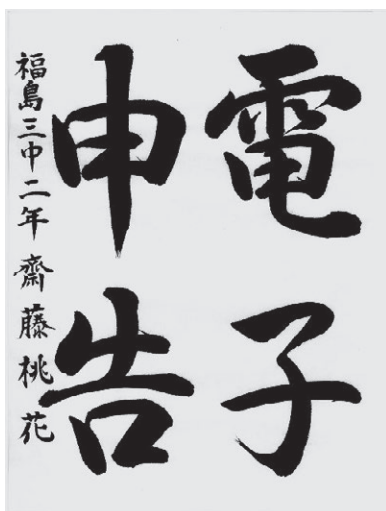 電子
申告
福島三中二年 齋藤桃花